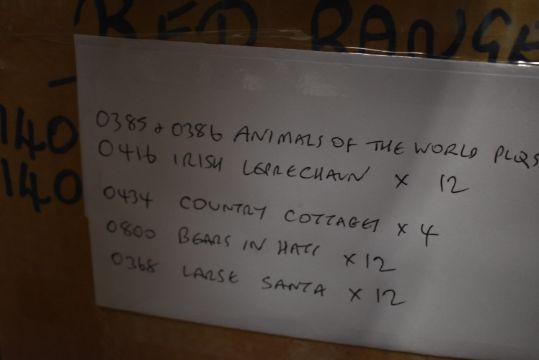 RED RANGE
140
140
0385 & 0386 ANIMALS OF THE WORLD PLQS
0416 IRISH LEPRECHAUN X 12
0434 COUNTRY COTTAGES X 4
0800 BEARS IN HATS X 12
0368 LARGE SANTA X 12